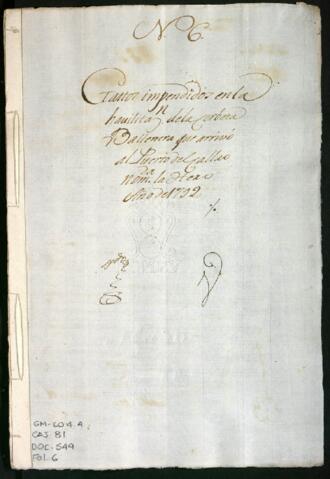 N. 6.
Gastos impendidos en la
havilitan de la Corbeta
Ballenera que arrivó
al Puerto del Callao
nom.da la
Año de 1792
GM-CO4.4
CAJ. 81
DOC. 549
Fol. 6